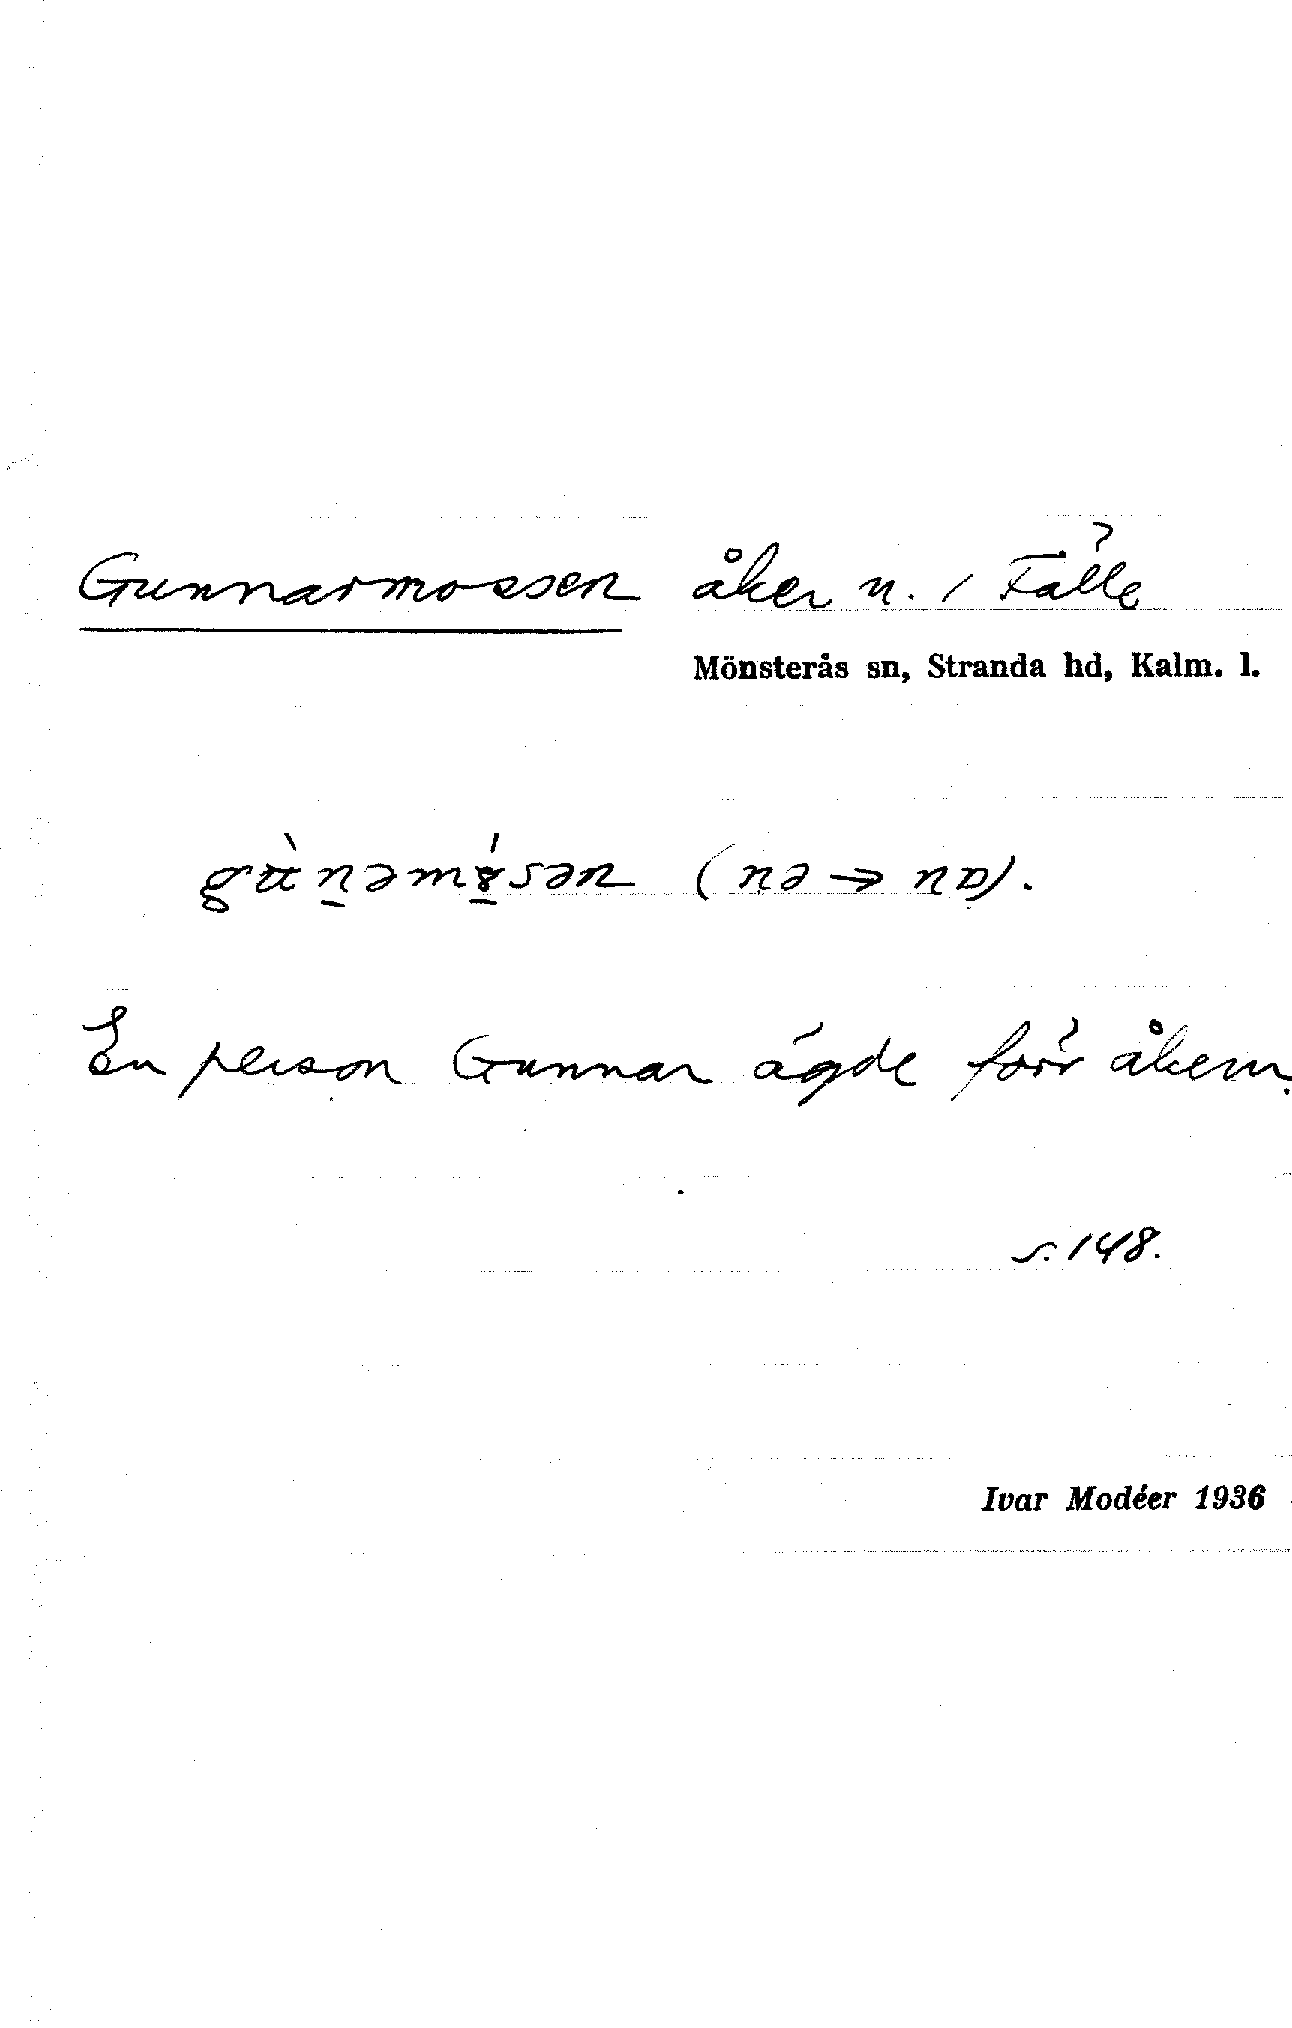 Gunnarmossen åker n. / Fälle
Mönsterås sn, Stranda hd, Kalm. l.
(nə → na).
En person Gunnar ägde förr åkern.
s. 148.
Ivar Modéer 1936